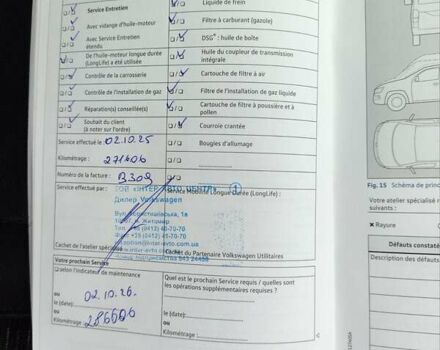 Service Entretien
Liquide de frein
Avec vidange d'huile-moteur
Filtre à carburant (gazole)
Avec Service Entretien étendu
DSG® : huile de boîte
De l'huile-moteur longue durée
(LongLife) a été utilisée
Huile du coupleur de transmission
intégrale
Contrôle de la carrosserie
Cartouche de filtre à air
Contrôle de l'installation de gaz
Filtre de l'installation de gaz liquide
Réparation(s) conseillée(s)
Cartouche de filtre à poussière et à
pollen
Souhait du client
(à noter sur l'ordre)
Courroie crantée
Service effectué le : 02.10.25
Bougies d'allumage
Kilométrage : 271606
Numéro de la facture :
Service effectué par :
Service Mobilité Longue Durée (LongLife) :
ТОВ «ІНТЕР АВТО ЦЕНТР»
Дилер Volkswagen
1
м. Житомир
Тел. +38 (0412) 41-70-70
Факс +38 (0412) 41-70-70
Cachet de l'atelier spécialisé
Cachet du Partenaire Volkswagen Utilitaires
Votre prochain Service
selon l'indicateur de maintenance
Quel est le prochain Service requis / quelles sont
les opérations supplémentaires requises ?
ou
02.10.26.
le (date):
ou
286606
Kilométrage :
Fig. 15 Schéma de princ
Votre atelier spécialisé r
suivants :
Rayure
Défauts constaté
Description des défauts